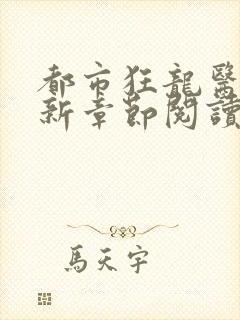 都市狂龍醫
新章節閱讀
馬天宇